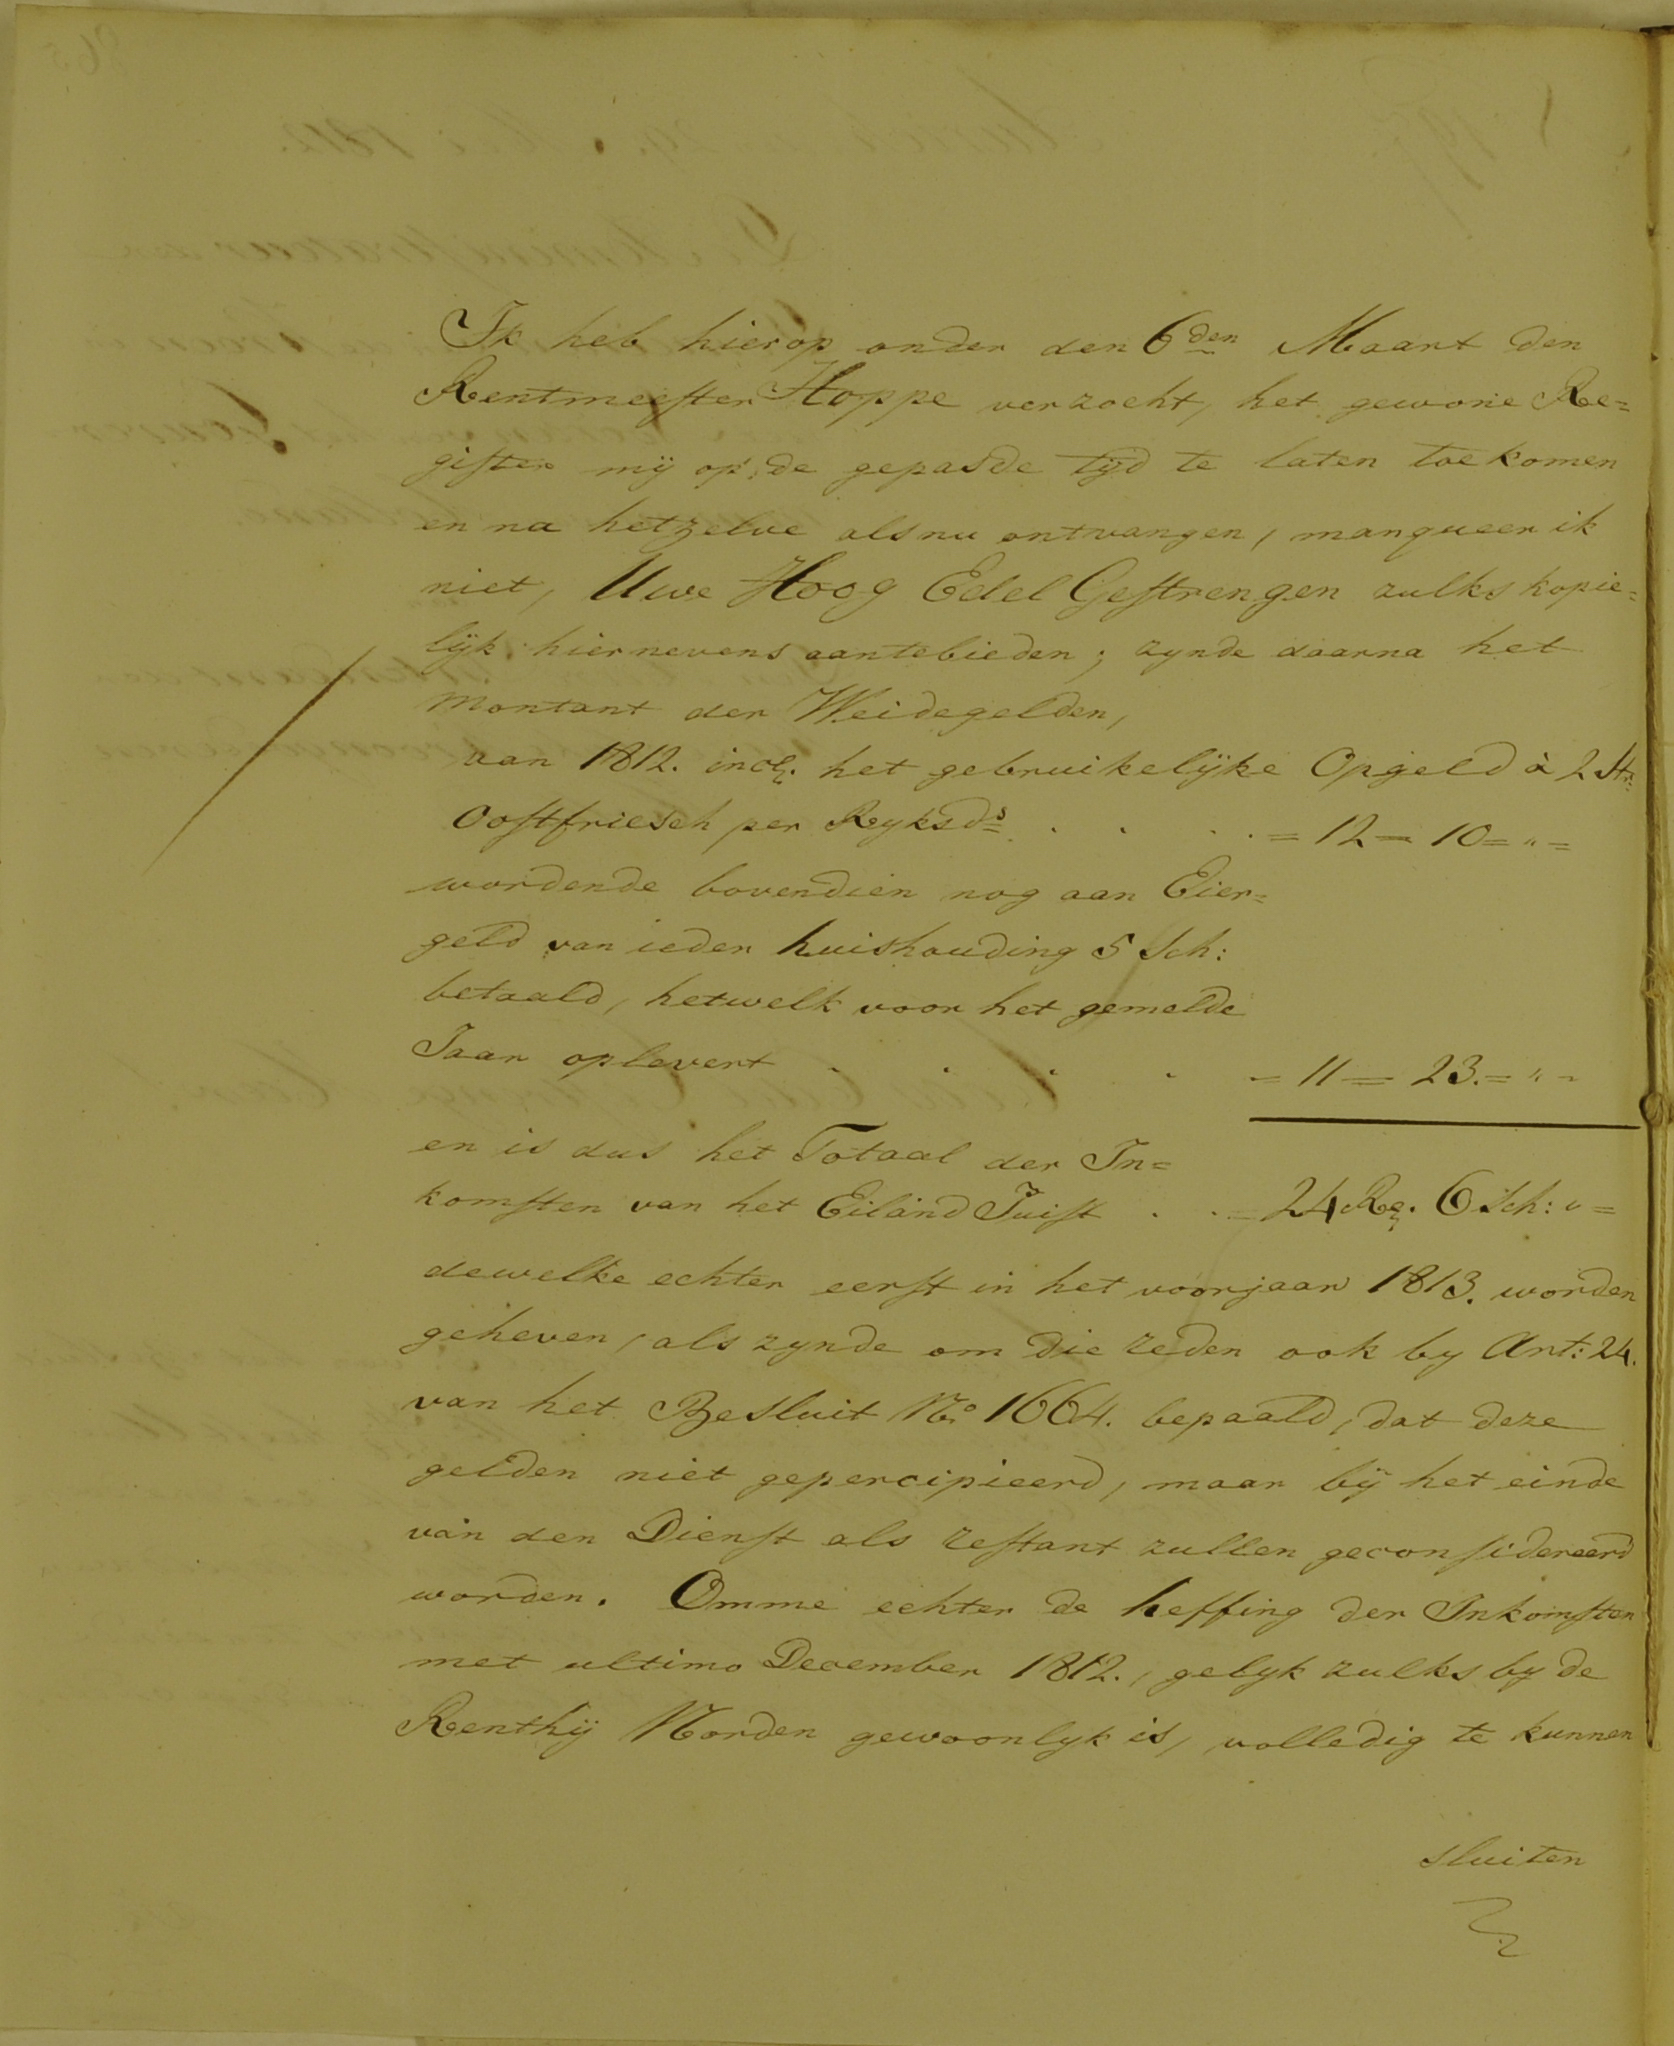 Ik heb hierop onder den 6den Maart den
Rentmeester Hoppe verzocht, het gewone Re=
gister mij op de gepasde tijd te laten toekomen
en na hetzelve alsnu ontvangen, manqueer ik
niet, Uwe Hoog Edel Gestrengen zulks kopie=
lijk hiernevens aantebieden; zynde daarna het
Montant der Weidegelden,
van 1812. incl. het gebruikelijke Opgeld à 2 Str:
Oostfriesch per Ryksds . . . . = 12 = 10 = " =
wordende bovendien nog aan Eier=
geld van ieder huishouding 5 Sch:
betaald, hetwelk voor het gemelde
Jaar oplevert . . . . = 11 = 23. = " =
en is dus het Totaal der In=
komsten van het Eiland Juist . . = 24 Rs. 6 Sch: " =
dewelke echter eerst in het voorjaar 1813. worden
geheven, als zynde om die reden ook by Art: 24.
van het Besluit No 1664. bepaald, dat deze
gelden niet gepercipieerd, maar bij het einde
van den Dienst als restant zullen geconsidereerd
worden. Omme echter de heffing der Inkomsten
met ultimo December 1812., gelyk zulks by de
Renthij Norden gewoonlyk is, volledig te kunnen
sluiten